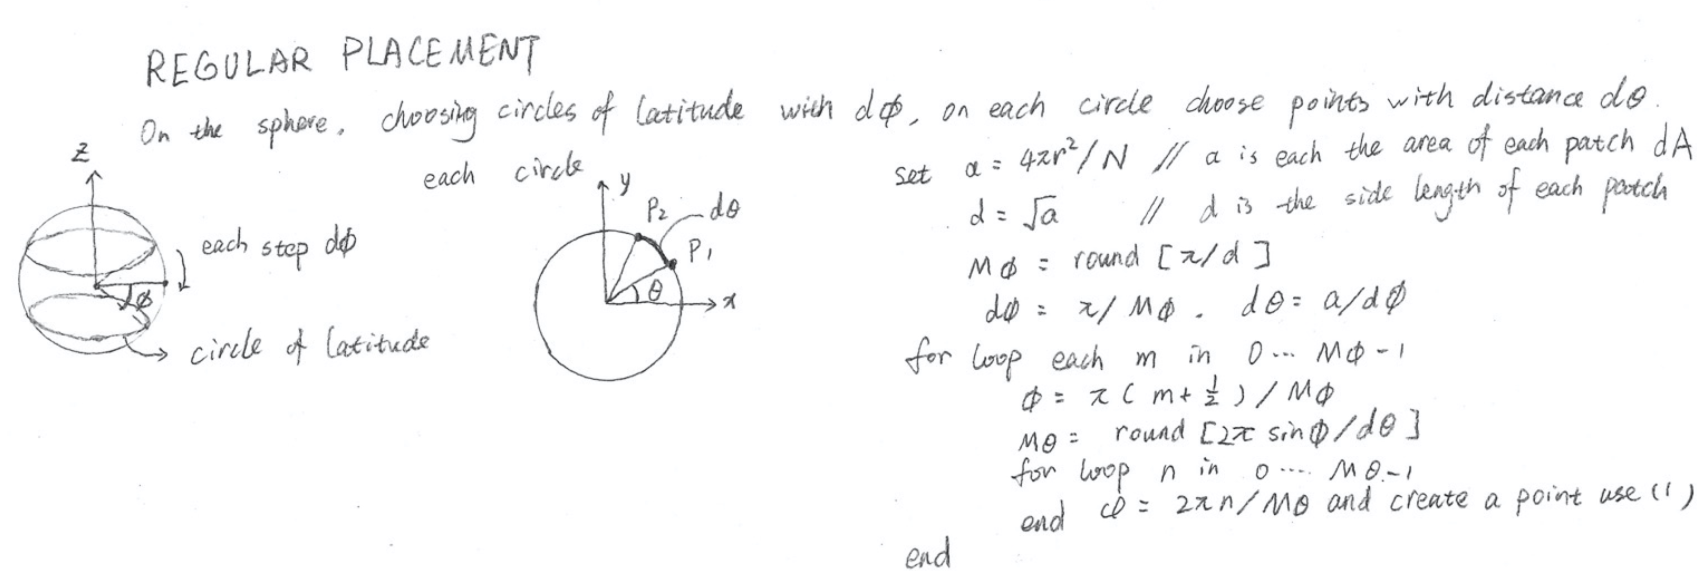 REGULAR PLACEMENT
On the sphere, choosing circles of latitude with dϕ, on each circle choose points with distance dθ.
z
each step dϕ
ϕ
circle of latitude
each circle
y
P2
dθ
P1
θ
x
set a = 4πr²/N // a is each the area of each patch dA
d = √a // d is the side length of each patch
Mϕ = round [π/d]
dϕ = π/Mϕ. dθ = a/dϕ
for loop each m in 0 ... Mϕ-1
ϕ = π(m+½)/Mϕ
Mθ = round [2π sinϕ/dθ]
for loop n in 0 .... Mθ-1
end φ = 2πn/Mθ and create a point use (1)
end